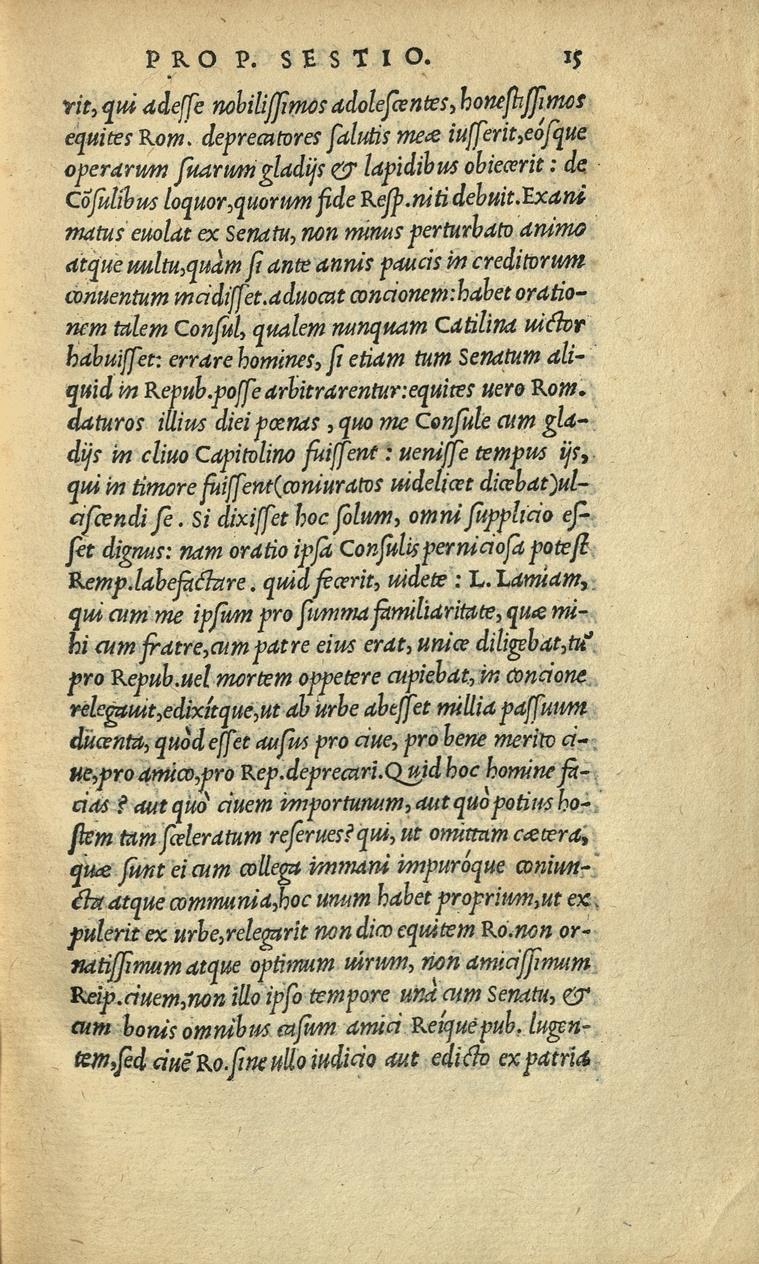 PRO P. SESTIO. 15
rit, qui adesse nobilissimos adolescentes, honestissimos
equites Rom. deprecatores salutis meæ iusserit, eósque
operarum suarum gladijs & lapidibus obiecerit : de
Cõsulibus loquor, quorum fide Resp. niti debuit. Exani
matus euolat ex Senatu, non minus perturbato animo
atque uultu, quàm si ante annis paucis in creditorum
conuentum incidisset. aduocat concionem: habet oratio-
nem talem Consul, qualem nunquam Catilina uictor
habuisset: errare homines, si etiam tum Senatum ali-
quid in Repub. posse arbitrarentur: equites uero Rom.
daturos illius diei pœnas , quo me Consule cum gla-
dijs in cliuo Capitolino fuissent : uenisse tempus ijs,
qui in timore fuissent (coniuratos uidelicet dicebat) ul-
ciscendi se . Si dixisset hoc solum, omni supplicio es-
set dignus: nam oratio ipsa Consulis perniciosa potest
Remp. labefactare . quid fecerit, uidete : L. Lamiam,
qui cum me ipsum pro summa familiaritate, quæ mi-
hi cum fratre, cum patre eius erat, unice diligebat, tũ
pro Repub. uel mortem oppetere cupiebat, in concione
relegauit, edixítque, ut ab urbe abesset millia passuum
ducenta, quòd esset ausus pro ciue, pro bene merito ci-
ue, pro amico, pro Rep. deprecari. Quid hoc homine fa-
cias ? aut quò ciuem importunum, aut quò potius ho-
stem tam sceleratum reserues? qui, ut omittam cætera,
quæ sunt ei cum collega immani impuróque coniun-
cta atque communia, hoc unum habet proprium, ut ex
pulerit ex urbe, relegarit non dico equitem Ro. non or-
natissimum atque optimum uirum, non amicissimum
Reip. ciuem, non illo ipso tempore unà cum Senatu, &
cum bonis omnibus casum amici Reíque pub. lugen-
tem, sed ciuẽ Ro. sine ullo iudicio aut edicto ex patria